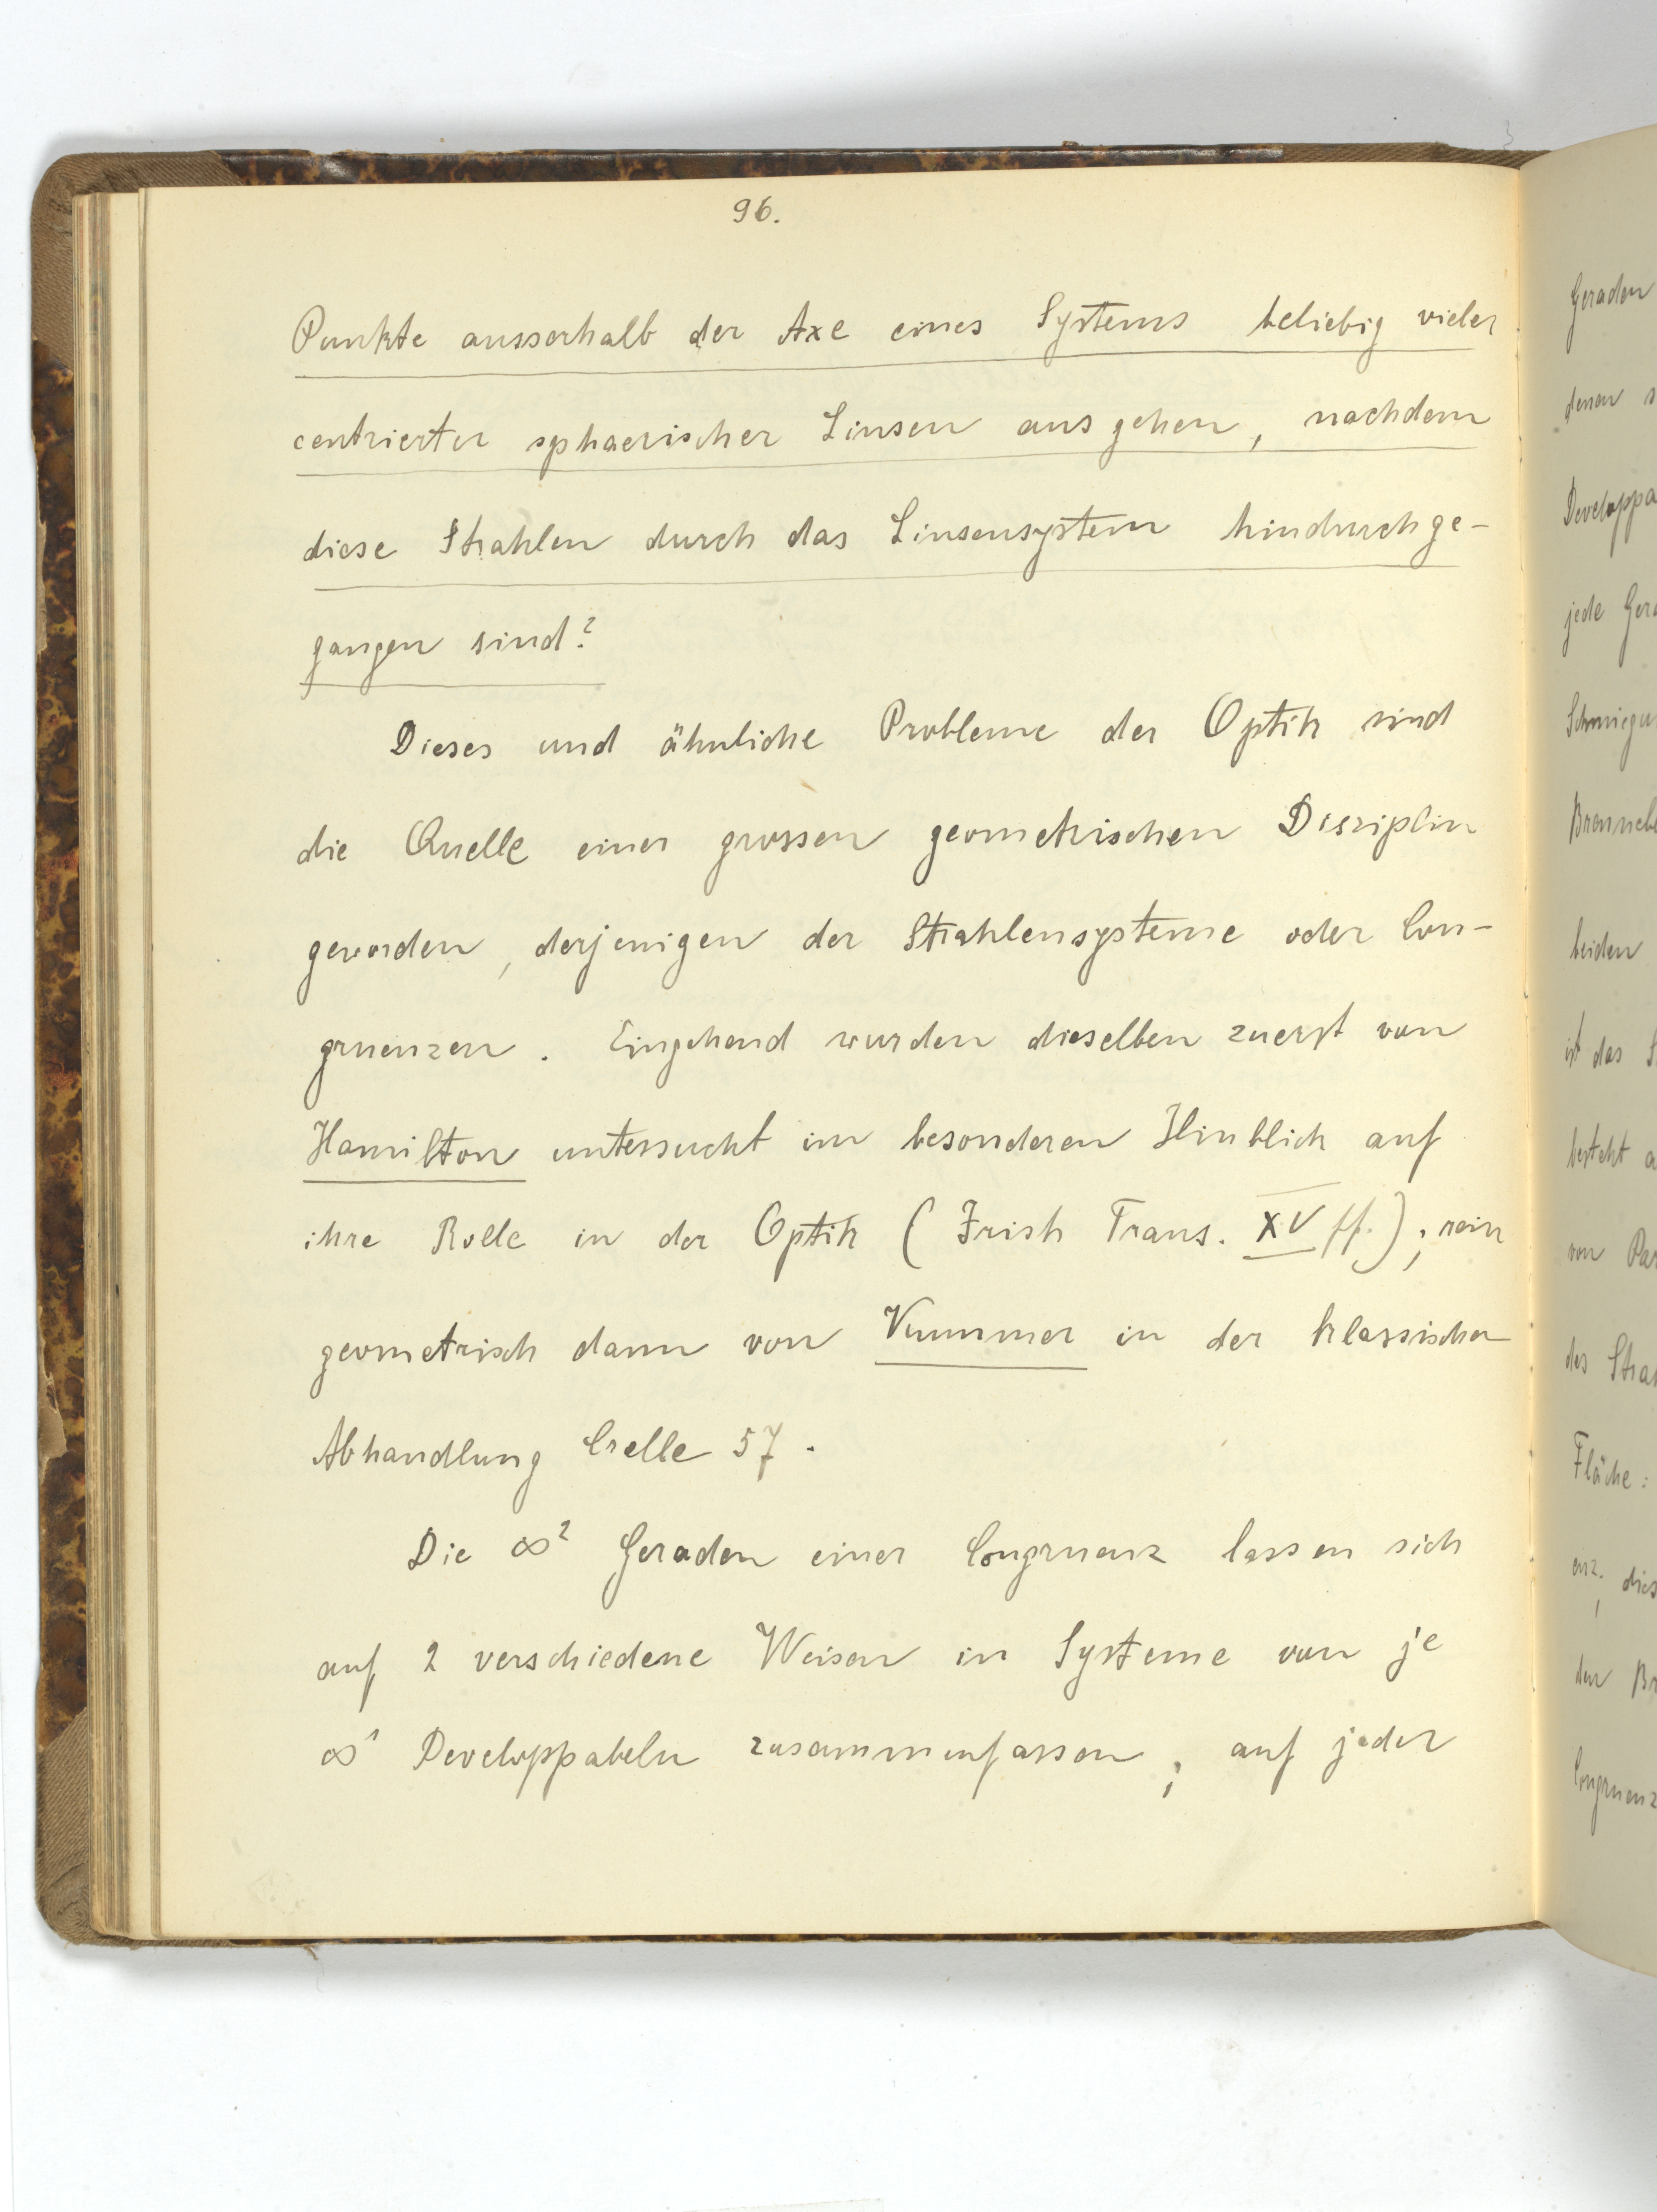 96.
Punkte ausserhalb der Axe eines Systems beliebig vieler
centrierter sphaerischer Linsen ausgehen, nachdem
diese Strahlen durch das Linsensystem hindurchge-
gangen sind?
Dieses und ähnliche Probleme der Optik sind
die Quelle einer grossen geometrischen Disziplin
geworden, derjenigen der Strahlensysteme oder Con-
gruenzen. Eingehend wurden dieselben zuerst von
Hamilton untersucht im besonderen Hinblick auf
ihre Rolle in der Optik (Irish Trans. XV ff.); rein
geometrisch dann von Kummer in der klassischen
Abhandlung Crelle 57.
Die ∞² Geraden einer Congruenz lassen sich
auf 2 verschiedene Weisen in Systeme von je
∞¹ Developpabeln zusammenfassen; auf jeder
Geraden
denen
Developpa
jede
Schmiegu
beiden
ist das
besteht
von
des Strah
Fläche:
enz;
der
Congruenz